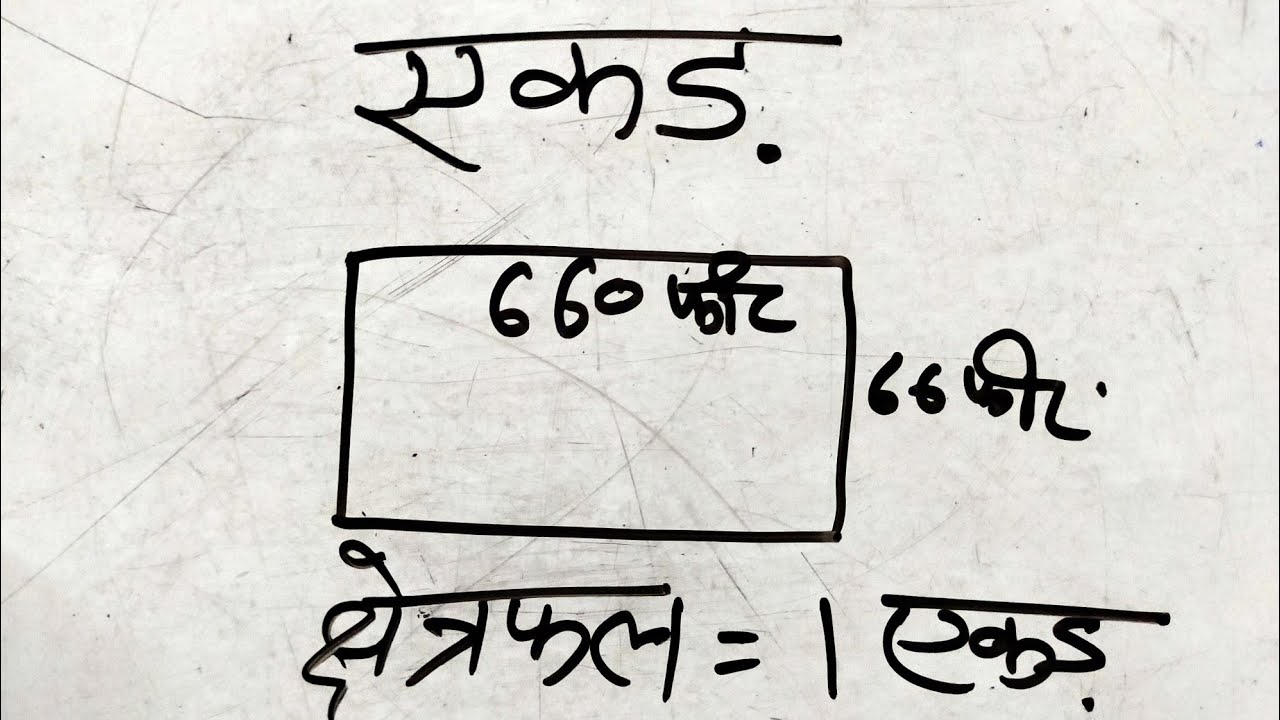 एकड़
660 फीट
66 फीट
क्षेत्रफल = 1 एकड़